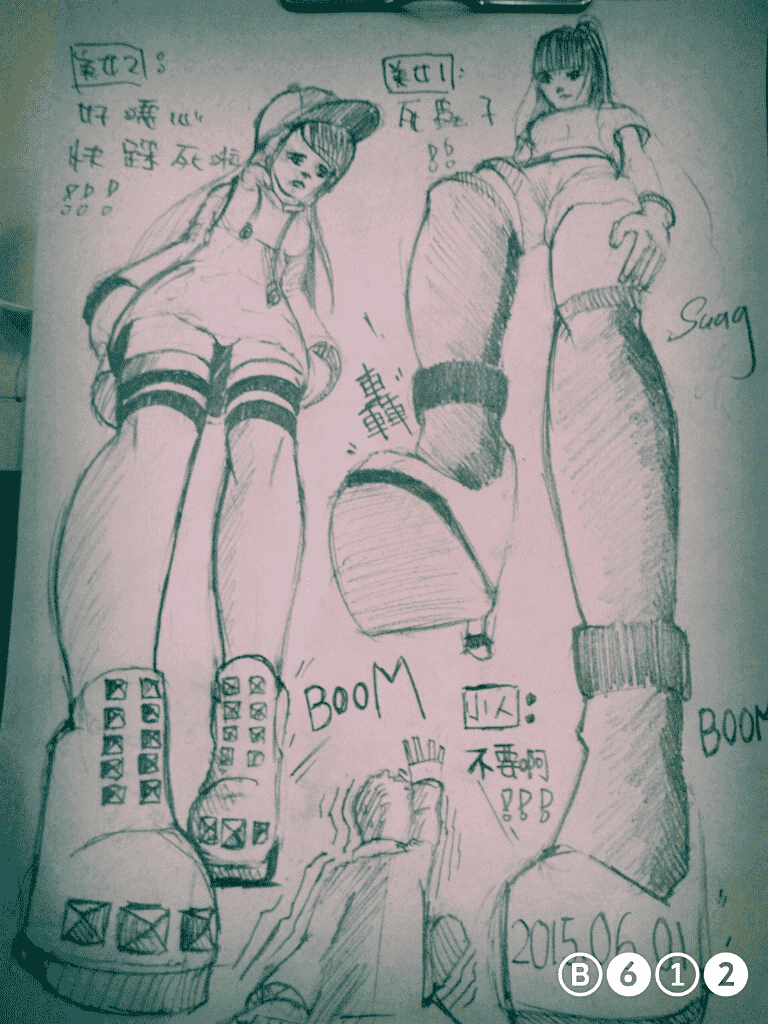 美女2:
好噁心
快踩死啦
!!!
美女1:
死蟲子
!!
Swag
轟
BOOM
小人:
不要啊
!!!
BOOM
2015.06.01
B612